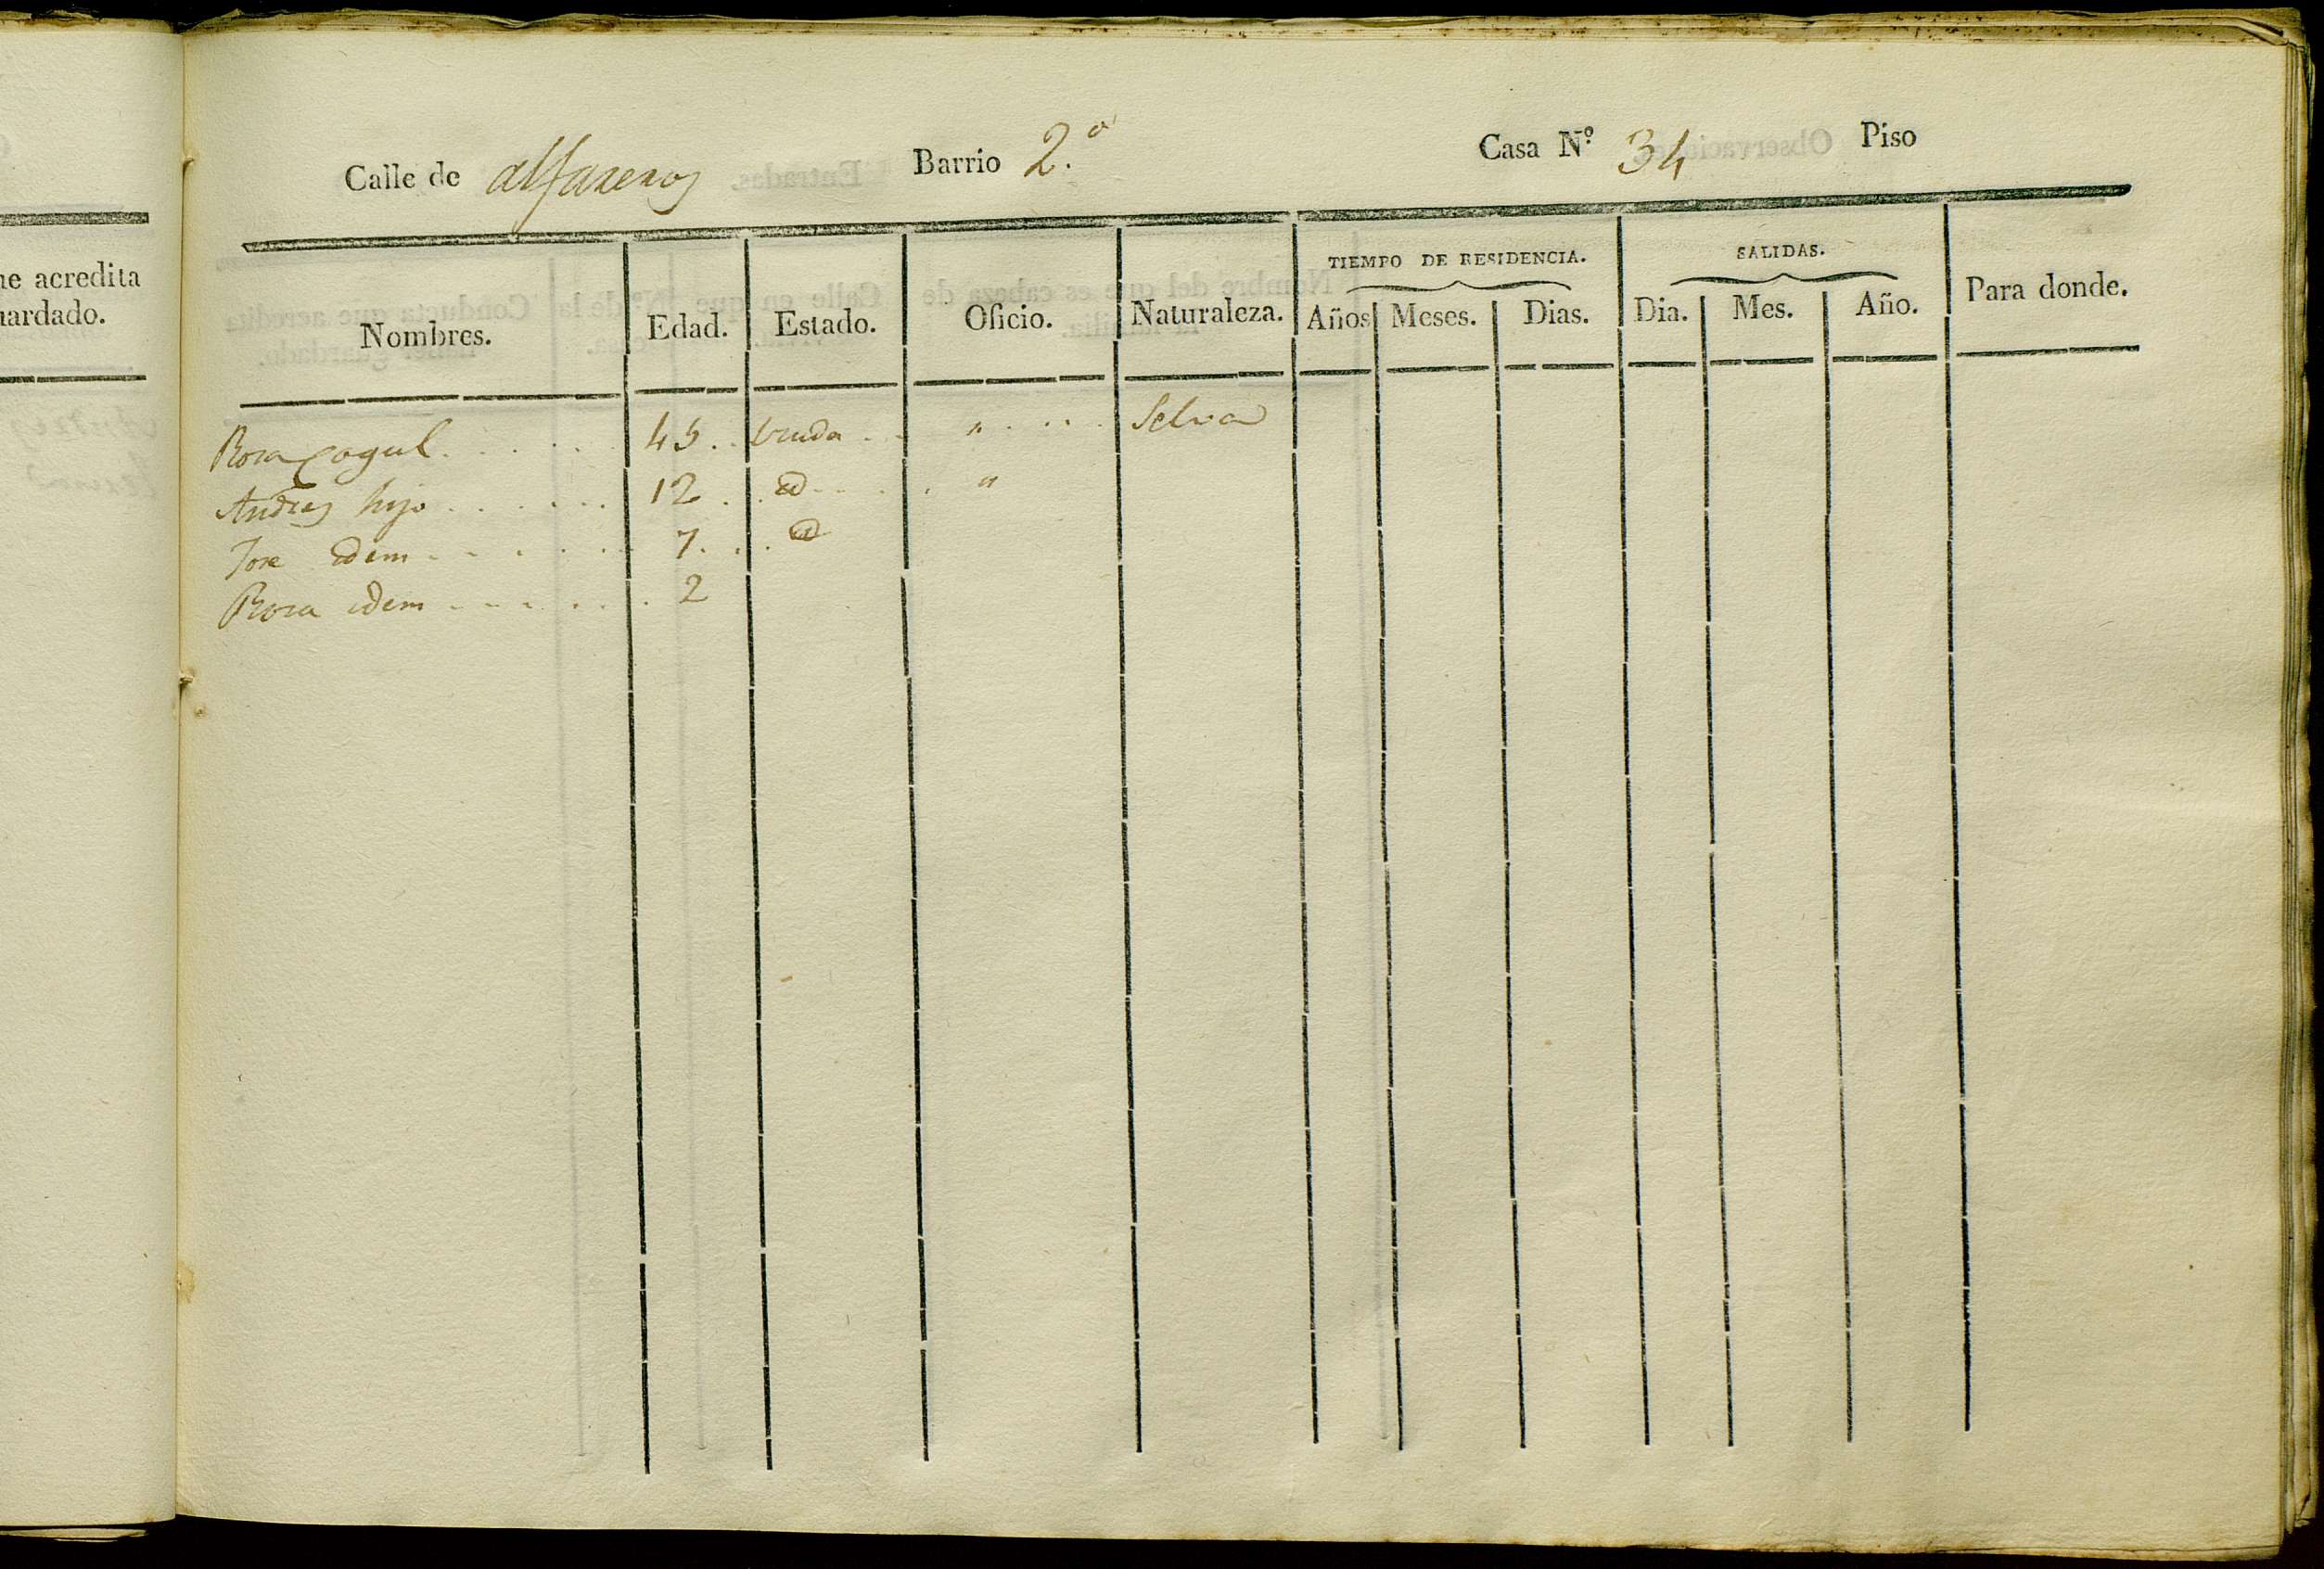 ue acredita
uardado.
Calle de alfareros Barrio 2.º Casa Nº 34 Piso
Nombres. Edad. Estado. Oficio. Naturaleza. TIEMPO DE RESIDENCIA. Años Meses. Dias. SALIDAS. Dia. Mes. Año. Para donde.
Rosa Cogul. . . . . . 45 . . viuda . . " . . . . Selva
Andres hijo . . . . . . 12 . . id . . . . "
Jose idem . . . . . . 7 . . . id
Rosa idem . . . . . . 2